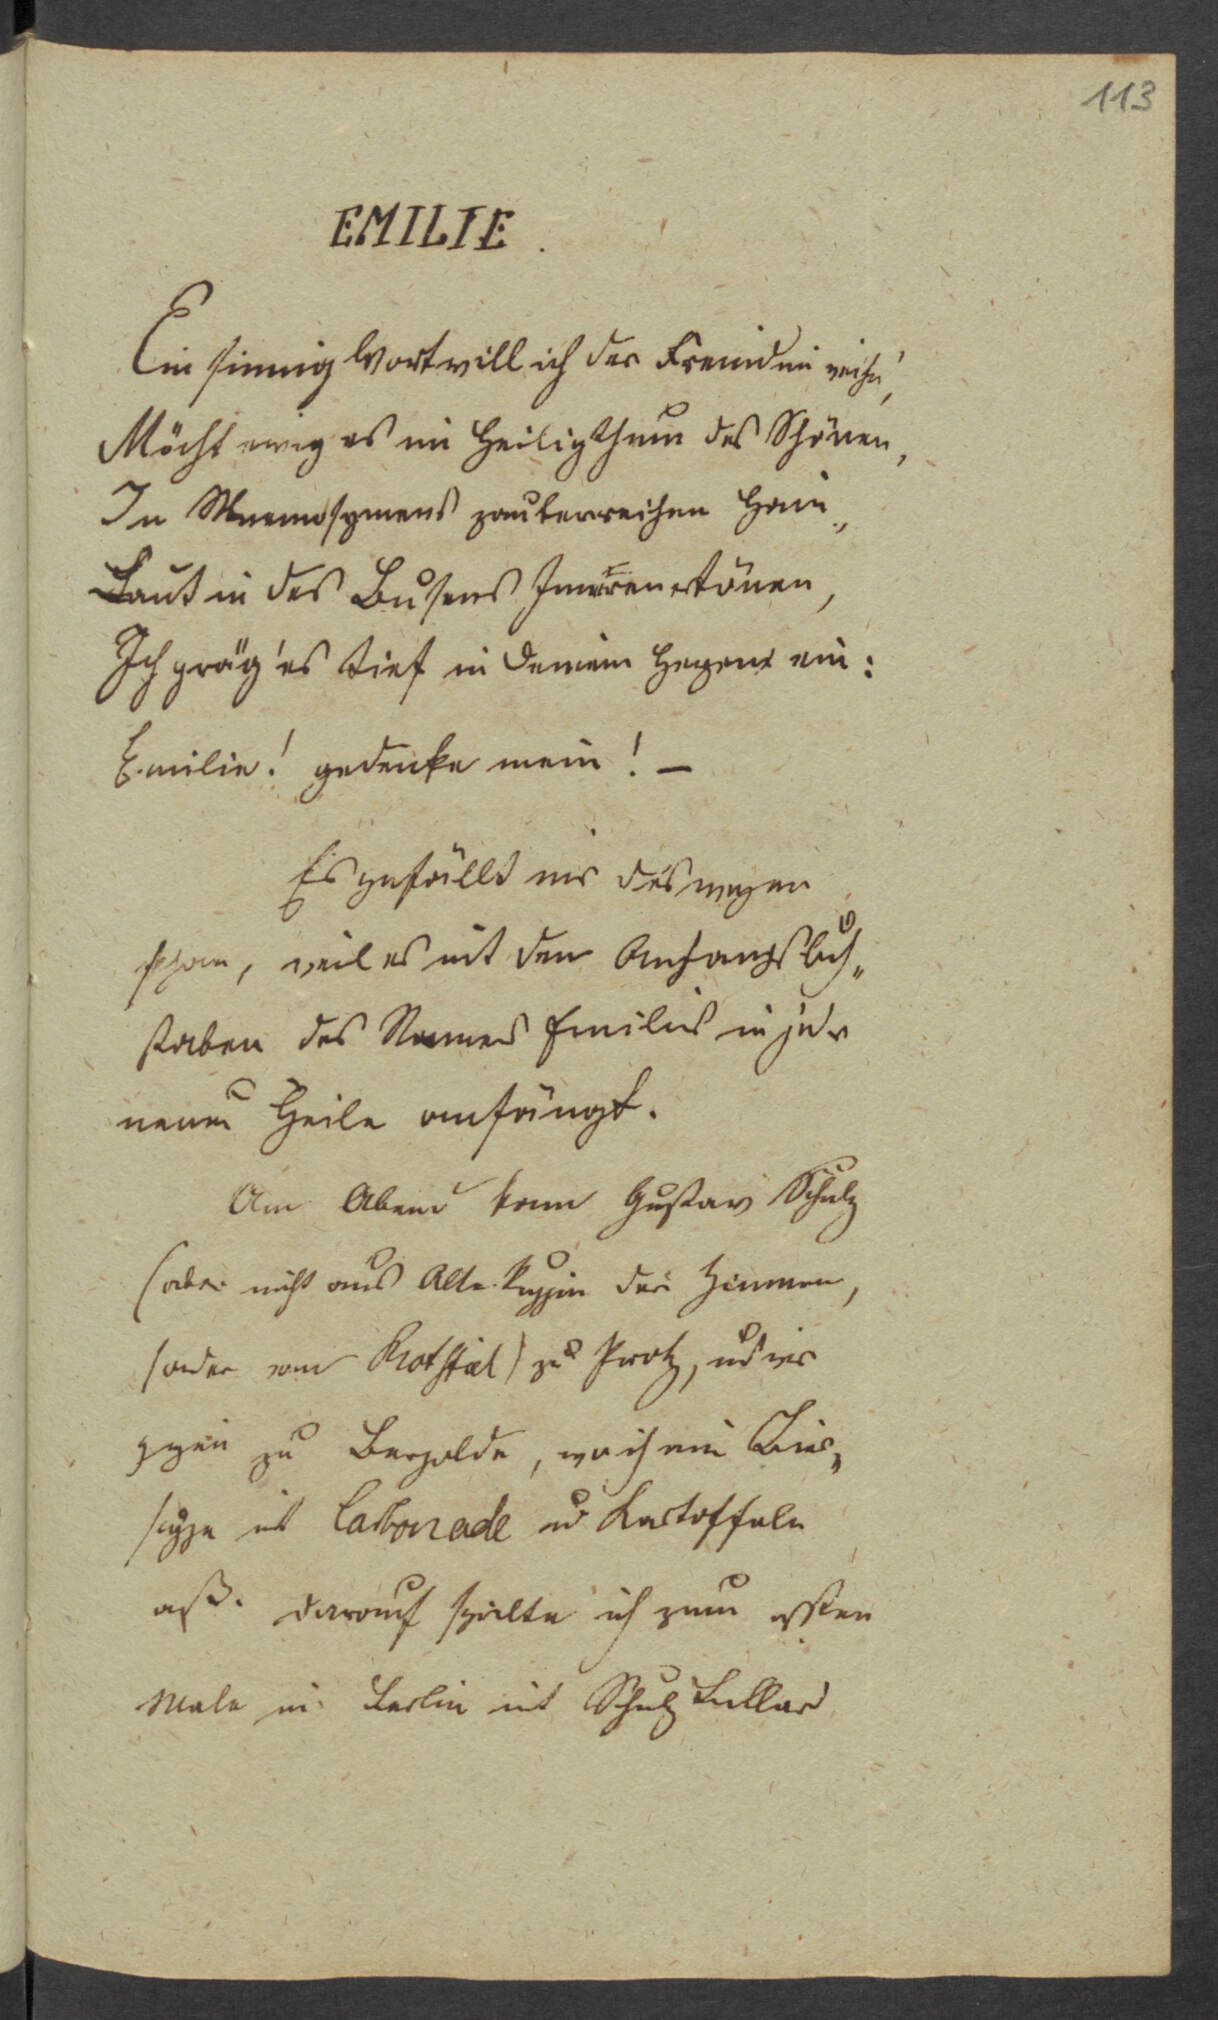 113
EMILIE.
Ein sinnig Wort will ich der Freundin weihn,
Möcht ewig es im Heiligthum des Schönen,
In Mnemosynens zauberreichen Hain,
Laut in des Busens Inneren ertönen,
Ich präg' es tief in Deinem Herzens ein:
Emilie! gedenke mein! —
Es gefällt mir deswegen
schon, weil es mit den Anfangsbuch„
staben des Namens Emilie in jeder
neuen Zeile anfängt.
Am Abend kam Gustav Schulz
(aber nicht aus Alte Ruppin der Zimmer,
sonder vom Rothstiel) zu Protz, und wir
gingen zu Bergolde, wo ich ein Bier„
suppe mit Carbonade und Kartoffeln
aß. Darauf spielte ich zum ersten
Male in Berlin mit Schulz Billard